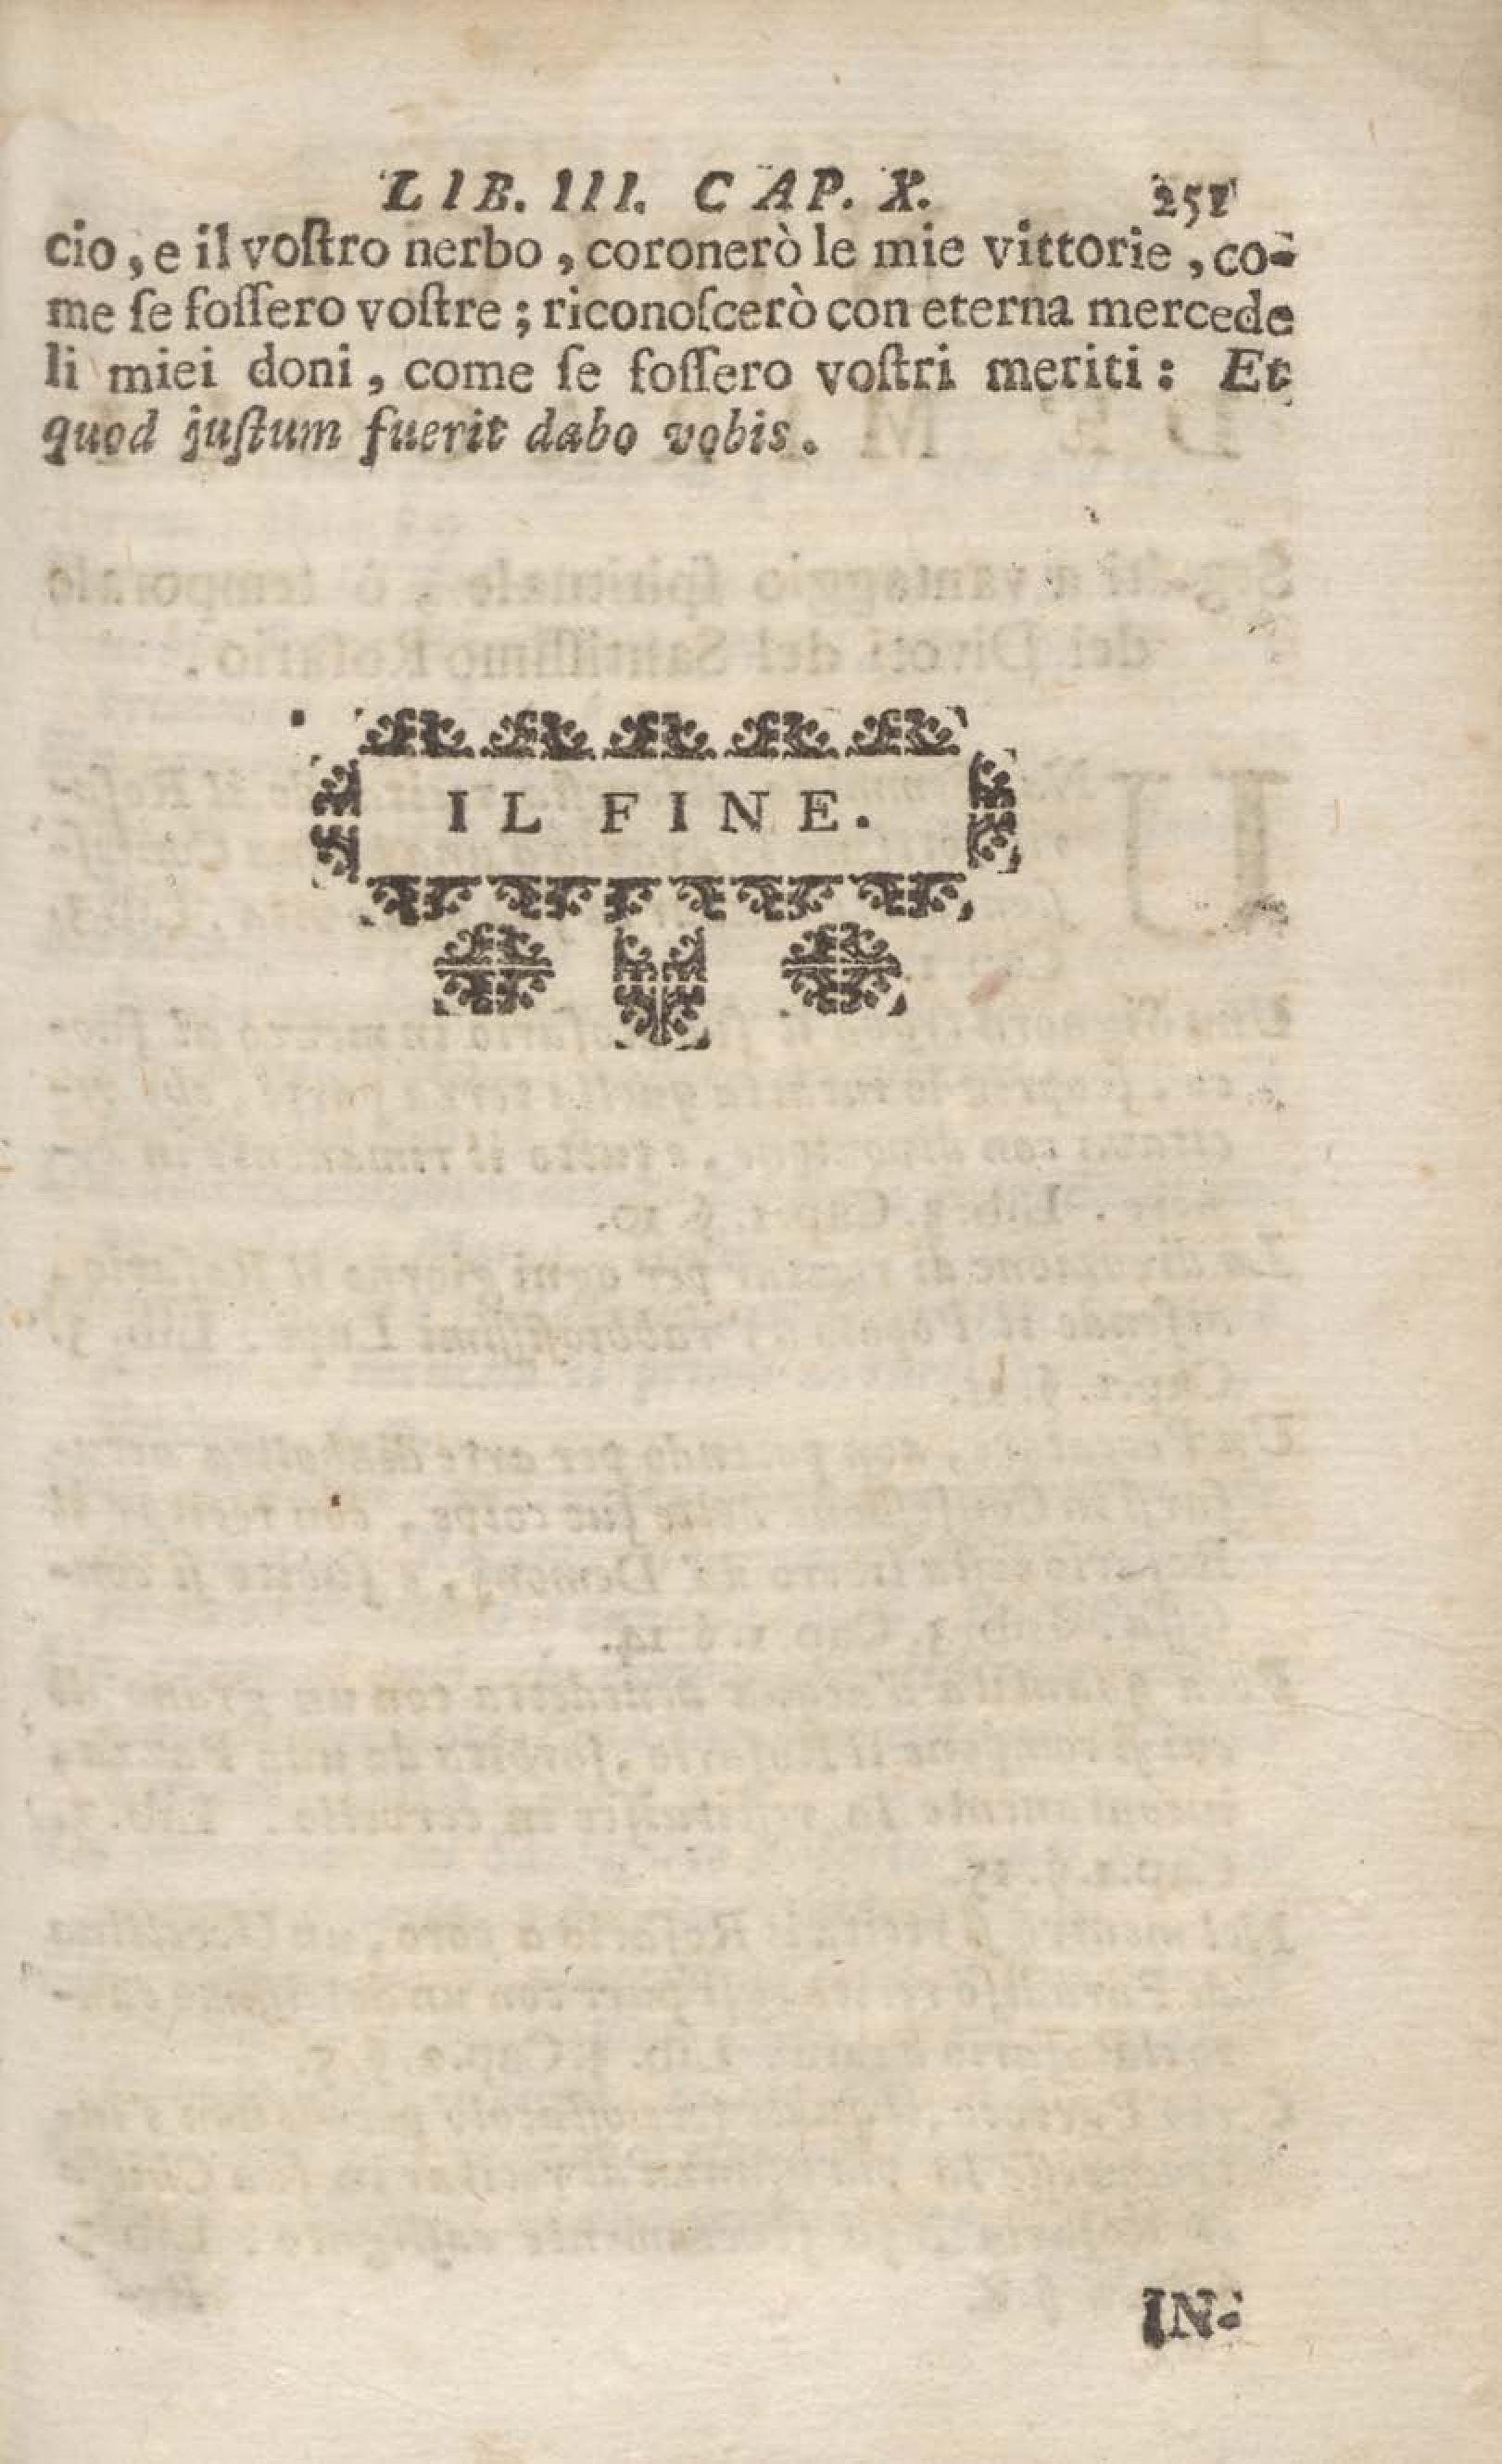 LIB. III. CAP. X. 251
cio, e il voſtro nerbo, coronerò le mie vittorie, co-
me ſe foſſero voſtre; riconoſcerò con eterna mercede
li miei doni, come ſe foſſero voſtri meriti: Et
quod juſtum fuerit dabo vobis.
IL FINE.
IN-